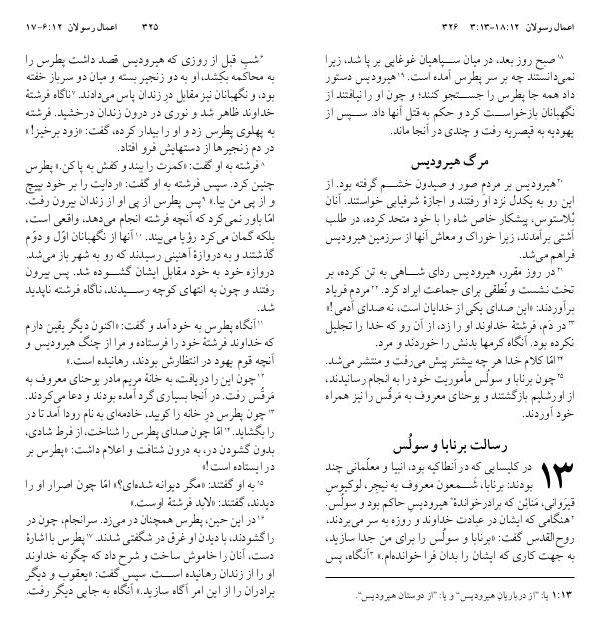 ۳۲۵ اعمال رسولان ۶:۱۲-۱۷
۶شبِ قبل از روزی که هیرودیس قصد داشت پطرس را
به محاکمه بکِشد، او به دو زنجیر بسته و میان دو سرباز خفته
بود، و نگهبانان نیز مقابل درِ زندان پاس می‌دادند. ۷ناگاه فرشتۀ
خداوند ظاهر شد و نوری در درون زندان درخشید. فرشته
به پهلوی پطرس زد و او را بیدار کرده، گفت: «زود برخیز!»
در دم زنجیرها از دستهایش فرو افتاد.
۸فرشته به او گفت: «کمرت را ببند و کفش به پا کن.» پطرس
چنین کرد. سپس فرشته به او گفت: «ردایت را بر خود بپیچ
و از پی من بیا.» ۹پس پطرس از پی او از زندان بیرون رفت.
امّا باور نمی‌کرد که آنچه فرشته انجام می‌دهد، واقعی است،
بلکه گمان می‌کرد رؤیا می‌بیند. ۱۰آنها از نگهبانان اوّل و دوّم
گذشتند و به دروازۀ آهنینی رسیدند که رو به شهر باز می‌شد.
دروازه خود به خود مقابل ایشان گشوده شد. پس بیرون
رفتند و چون به انتهای کوچه رسیدند، ناگاه فرشته ناپدید
شد.
۱۱آنگاه پطرس به خود آمد و گفت: «اکنون دیگر یقین دارم
که خداوند فرشتۀ خود را فرستاده و مرا از چنگ هیرودیس و
آنچه قوم یهود در انتظارش بودند، رهانیده است.»
۱۲چون این را دریافت، به خانۀ مریم مادر یوحنای معروف به
مَرقُس رفت. در آنجا بسیاری گرد آمده بودند و دعا می‌کردند.
۱۳چون پطرس درِ خانه را کوبید، خادمه‌ای به نام رودا آمد تا در
را بگشاید. ۱۴امّا چون صدای پطرس را شناخت، از فرط شادی،
بدون گشودن در، به درون شتافت و اعلام داشت: «پطرس بر
در ایستاده است!»
۱۵به او گفتند: «مگر دیوانه شده‌ای؟» امّا چون اصرار او را
دیدند، گفتند: «لابد فرشتۀ اوست.»
۱۶در این حین، پطرس همچنان در می‌زد. سرانجام، چون در
را گشودند، با دیدن او غرق در شگفتی شدند. ۱۷پطرس با اشارۀ
دست، آنان را خاموش ساخت و شرح داد که چگونه خداوند
او را از زندان رهانیده است. سپس گفت: «یعقوب و دیگر
برادران را از این امر آگاه سازید.» آنگاه به جایی دیگر رفت.
اعمال رسولان ۱۸:۱۲-۳:۱۳ ۳۲۶
۱۸صبح روز بعد، در میان سپاهیان غوغایی بر پا شد، زیرا
نمی‌دانستند چه بر سر پطرس آمده است. ۱۹هیرودیس دستور
داد همه جا پطرس را جستجو کنند؛ و چون او را نیافتند از
نگهبانان بازخواست کرد و حکم به قتل آنها داد. سپس از
یهودیه به قیصریه رفت و چندی در آنجا ماند.
مرگ هیرودیس
۲۰هیرودیس بر مردم صور و صیدون خشم گرفته بود. از
این رو به یکدل نزد او رفتند و اجازۀ شرفیابی خواستند. آنان
بْلاستوس، پیشکار خاص شاه را با خود متحد کرده، در طلب
آشتی برآمدند، زیرا خوراک و معاش آنها از سرزمین هیرودیس
فراهم می‌شد.
۲۱در روز مقرر، هیرودیس ردای شاهی به تن کرده، بر
تخت نشست و نُطقی برای جماعت ایراد کرد. ۲۲مردم فریاد
برآوردند: «این صدای یکی از خدایان است، نه صدای آدمی!»
۲۳در دَم، فرشتۀ خداوند او را زد، از آن رو که خدا را تجلیل
نکرده بود. آنگاه کرمها بدنش را خوردند و مرد.
۲۴امّا کلام خدا هر چه بیشتر پیش می‌رفت و منتشر می‌شد.
۲۵چون برنابا و سولُس مأموریت خود را به انجام رسانیدند،
از اورشلیم بازگشتند و یوحنای معروف به مَرقُس را نیز همراه
خود آوردند.
رسالت برنابا و سولُس
۱۳ در کلیسایی که در اَنطاکیه بود، انبیا و معلّمانی چند
بودند: برنابا، شَمعون معروف به نیجِر، لوکیوسِ
قیرَوانی، مَناعِن که برادرخواندۀ* هیرودیسِ حاکم بود و سولُس.
۲هنگامی که ایشان در عبادت خداوند و روزه به سر می‌بردند،
روح‌القدس گفت: «برنابا و سولُس را برای من جدا سازید،
به جهت کاری که ایشان را بدان فرا خوانده‌ام.» ۳آنگاه، پس
۱:۱۳ یا: "از درباریانِ هیرودیس" و یا: "از دوستان هیرودیس".